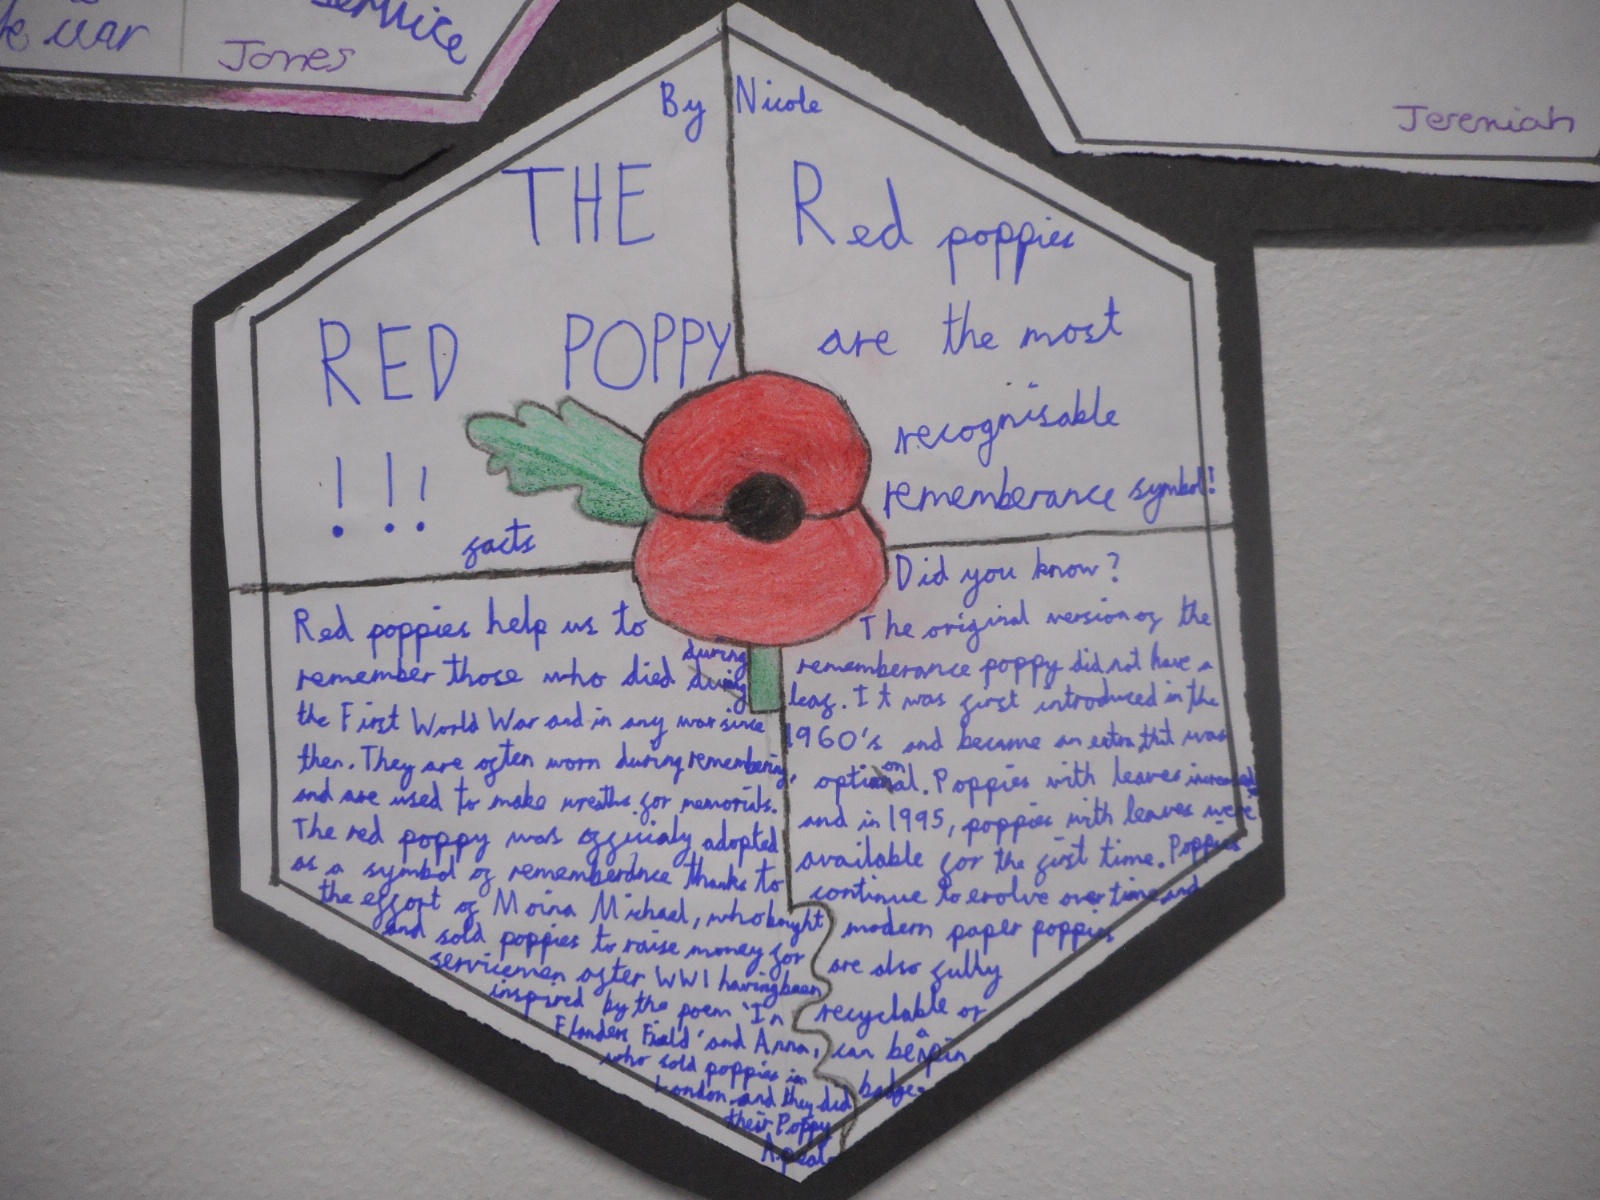 service
war
Jones
Jeremiah
By Nicole
THE
RED POPPY
!!!
facts
Red poppies
are the most
recognisable
rememberance symbol!
Red poppies help us to
remember those who died during
the First World War and in any war since
then. They are often worn during remembering,
and are used to make wreaths for memorials.
The red poppy was officialy adopted
as a symbol of rememberance thanks to
the effort of Moina Michael, who bought
and sold poppies to raise money for
servicemen after WW1 having been
inspired by the poem 'In
Flanders Field' and Anna,
who sold poppies in
London and they did
their Poppy
Apeal
Did you know?
The original version of the
rememberance poppy did not have a
leaf. It was first introduced in the
1960's and became an extra that was
optional. Poppies with leaves increased
and in 1995, poppies with leaves were
available for the first time. Poppies
continue to evolve over time and
modern paper poppies
are also fully
recyclable or
can be a pin
badge.